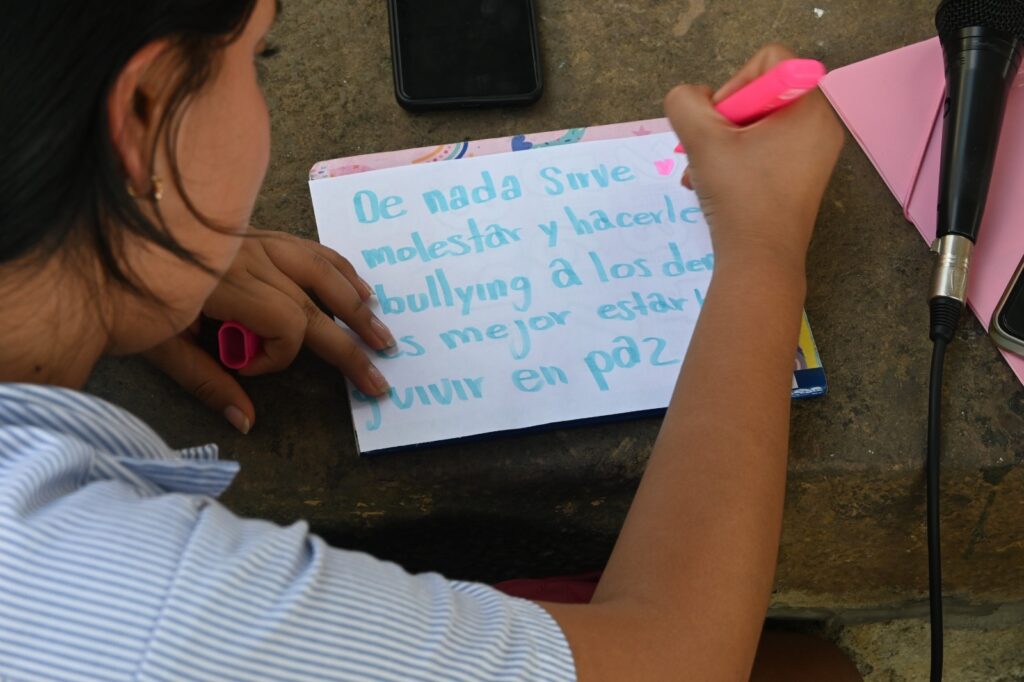 De nada Sirve
molestar y hacerle
bullying a los
es mejor estar
y vivir en paz